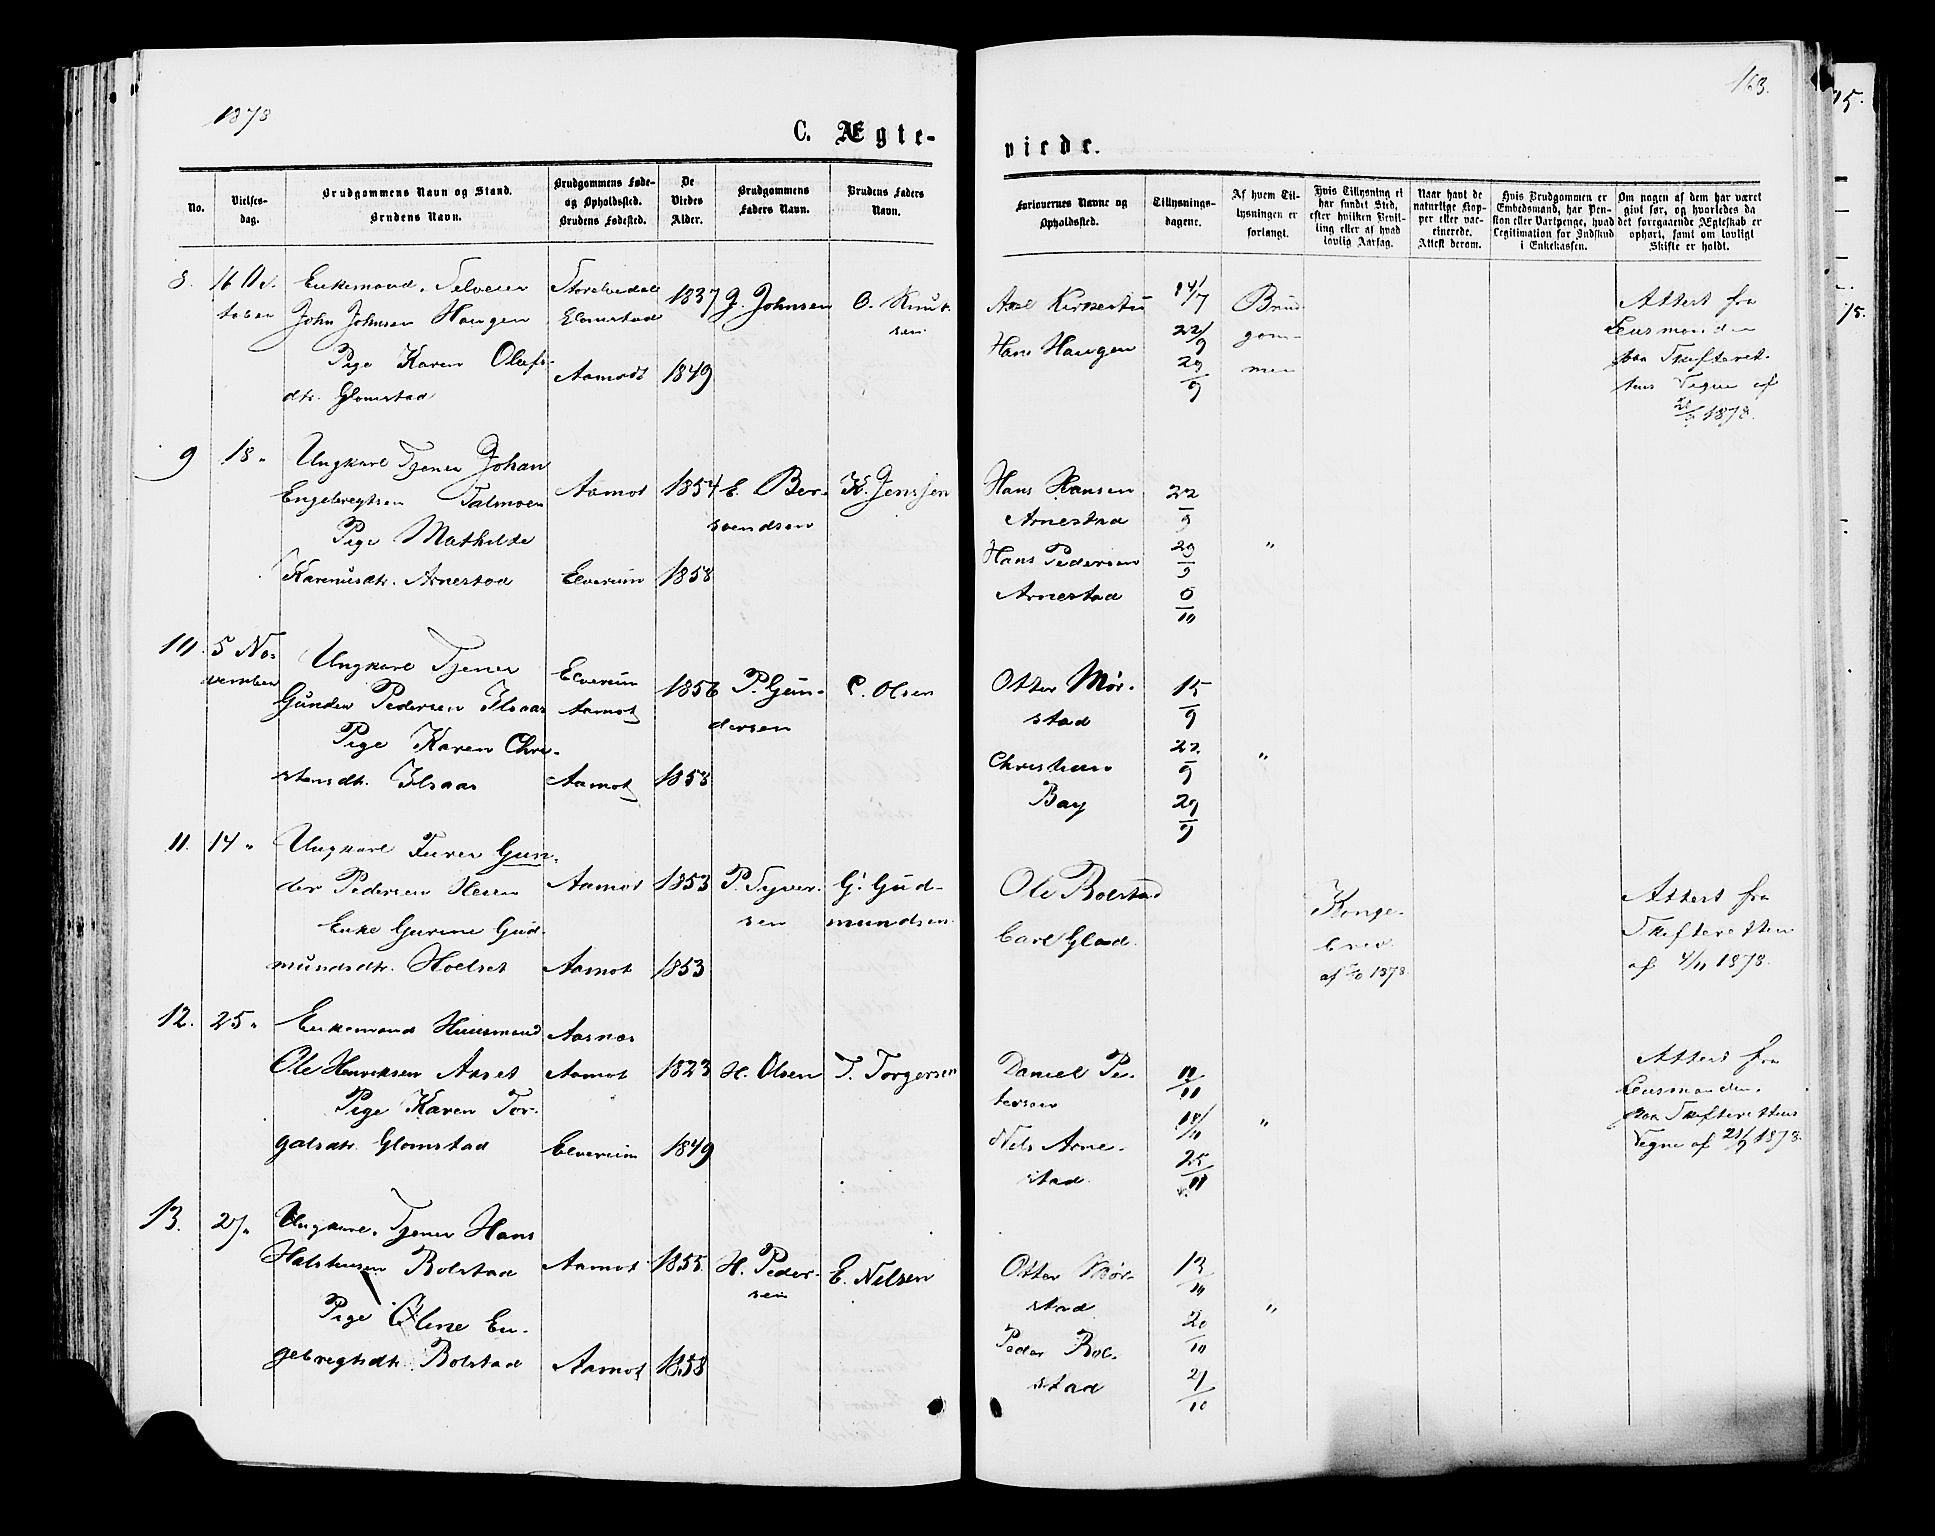 1878
163.
C. Ægte-
viede.
No.
Vielses-
dag.
Brudgommens Navn og Stand.
Brudens Navn.
Brudgommens Føde-
og Opholdssted.
Brudens Fødested.
De
Viedes
Alder.
Brudgommens
Faders Navn.
Brudens Faders
Navn.
Forlovernes Navne og
Opholdssted.
Tillysnings-
dagene.
Af hvem Til-
lysningen er
forlangt.
Hvis Tillysning ei
har fundet Sted,
efter hvilken Bevil-
ling eller af hvad
lovlig Aarsag.
Naar havt de
naturlige Kop-
per eller vac-
cinerede.
Attest derom.
Hvis Brudgommen er
Embedsmand, har Pen-
sion eller Vartpenge, hvad
Legitimation for Indskud
i Enkekassen.
Om nogen af dem har været
gift før, og hvorledes da
det foregaaende Ægteskab er
ophørt, samt om lovligt
Skifte er holdt.
8. 16 Ok-
tober
Enkemand, Selveier
John Johnsen Haugen
Pige Karen Olafs-
dtr. Glomstad
Storelvedal
Glomstad
Aamodt
1837
1849
J. Johnsen
O. Knut-
sen
Axel Kirkestu
Hans Haugen
14/7
22/9
29/9
Brud-
gom-
men
Attest fra
Lensmanden
paa Skifteret-
tens Vegne af
1878.
9 18 "
Ungkarl Tjener Johan
Engebregtsen Talmoen
Pige Mathilde
Karenusdtr. Arnestad
Aamot
Elverum
1854
1858
E. Ber-
svendsen
K. Jenssen
Hans Hansen
Arnestad
Hans Pedersen
Arnestad
22/9
29/9
6/10
"
10 5 No-
vember
Ungkarl Tjener
Gunder Pedersen Ilsaas
Pige Karen Chri-
stensdtr. Ilsaas
Elverum
Aamot
Aamot
1856
1858
P. Gun-
dersen
C. Olsen
Otter Mør-
stad
Christian
Bay
15/9
22/9
29/9
"
11. 14 "
Ungkarl Furer Gun-
der Pedersen
Enke Gurine Gud-
mundsdtr. Hoelset
Aamot
Aamot
1853
1853
P. Syver-
sen
G. Gud-
mundsen
Ole Bolstad
Carl Glad.
Konge-
brev
af 1878.
Attest fra
Skifteretten
af 4/11 1878.
12. 25 "
Enkemand Huusmand
Ole Henriksen Aaset
Pige Karen Tor-
galsdtr. Glomstad
Aasnæs
Aamot
Elverum
1823
1849
H. Olsen
T. Torgersen
Daniel Pe-
tersen
Nils Arne-
stad
11/11
18/11
25/11
"
Attest fra
Lensmanden
paa Skifterettens
Vegne af 1878.
13. 27 "
Ungkarl, Tjener Hans
Halstensen Bolstad
Pige Oline En-
gebregtsdtr. Bolstad
Aamot
Aamot
1855
1858
H. Peder-
sen
E. Nilsen
Otter Mør-
stad
Peder Bol-
stad
13/10
20/10
27/10
"